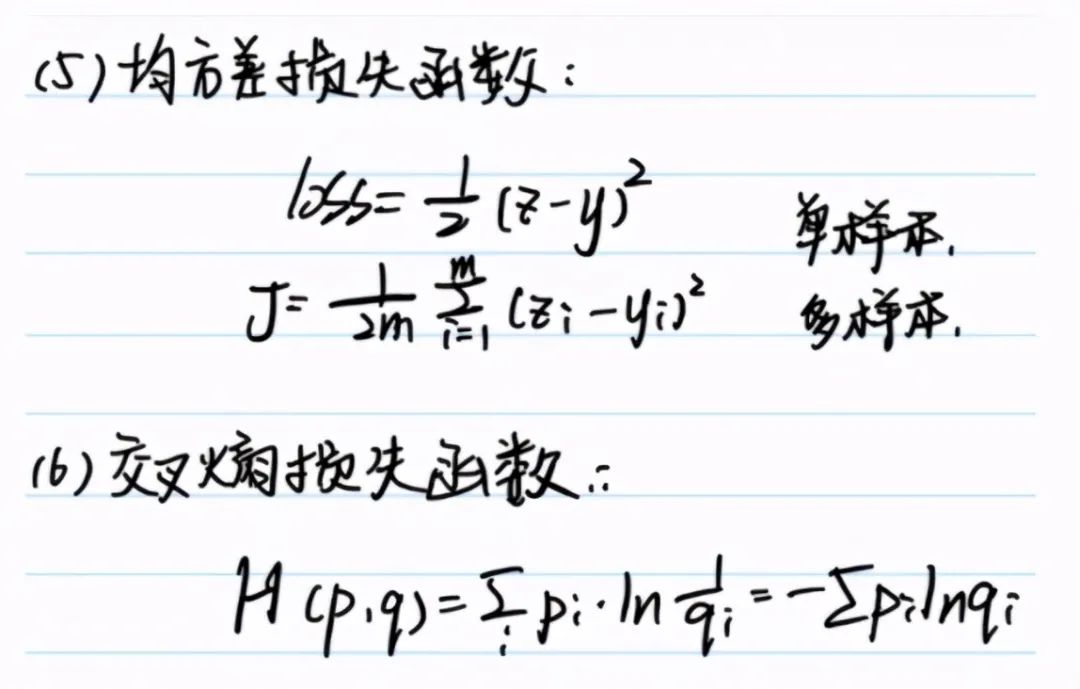 (5) 均方差损失函数:
loss = \frac{1}{2} (z-y)^2 单样本.
J = \frac{1}{2m} \sum_{i=1}^{m} (z_i - y_i)^2 多样本.
(6) 交叉熵损失函数:
H(p,q) = \sum_i p_i \cdot \ln \frac{1}{q_i} = -\sum p_i \ln q_i